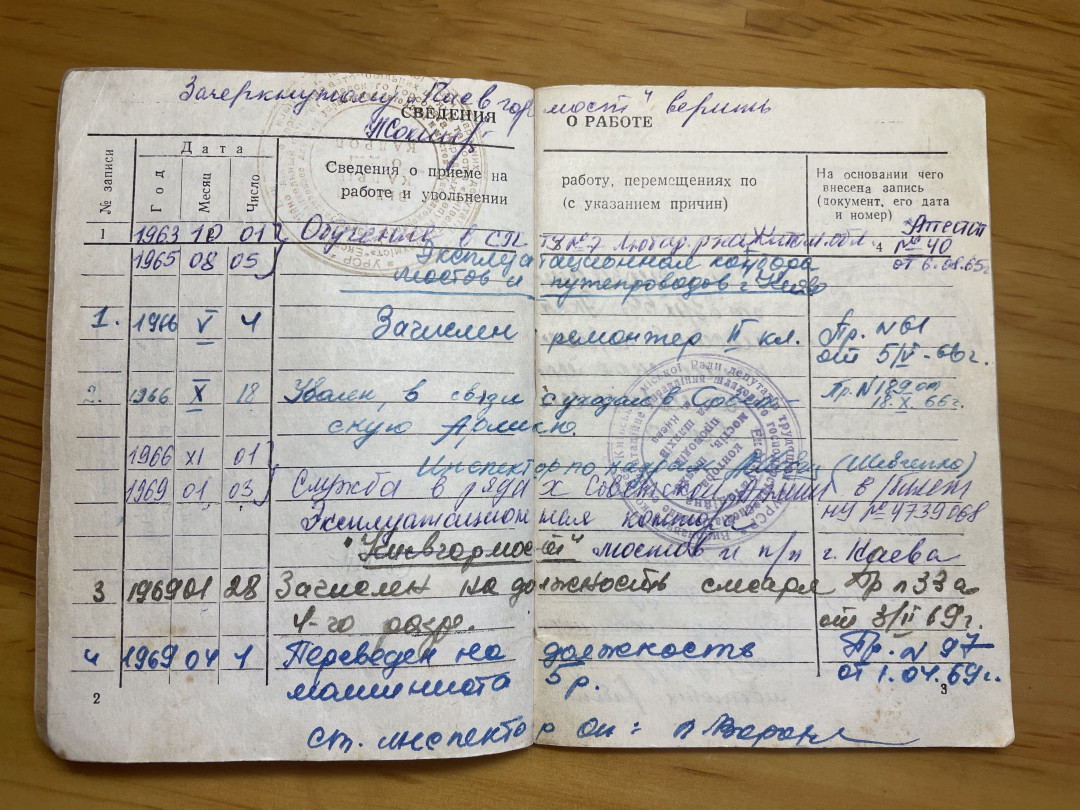 Зачеркнутому "Киевгормост" верить
СВЕДЕНИЯ О РАБОТЕ
№ записи
Дата
Год
Месяц
Число
Сведения о приеме на работу, перемещениях по
работе и увольнении (с указанием причин)
На основании чего
внесена запись
(документ, его дата
и номер)
1 1963 10 01 Обучение в СПТУ №7 Любар. р-на Жит. обл. 4 Аттест
№ 40
1965 08 05 Эксплуатационная контора от 6.08.65г
мостов и путепроводов г. Киева
1. 1966 V 4 Зачислен ремонтер II кл. Пр. N 61
от 5/V-66г.
2. 1966 X 18 Уволен в связи с уходом в Совет- Пр. N 189 от
скую Армию. 18.X.66г.
1966 XI 01 Инспектор по кадрам (Шевченко)
1969 01 03 Служба в рядах Советской Армии в/билет
Эксплуатационная контора НУ № 4739068
"Киевгормост" мостов и п/п г. Киева
3 1969 01 28 Зачислен на должность слесаря Пр п 33а
4-го разр. от 3/II 69г.
4 1969 04 1 Переведен на должность Пр. N 97
машиниста 5 р. от 1.04.69г.
2 3
ст. инспектор ок: